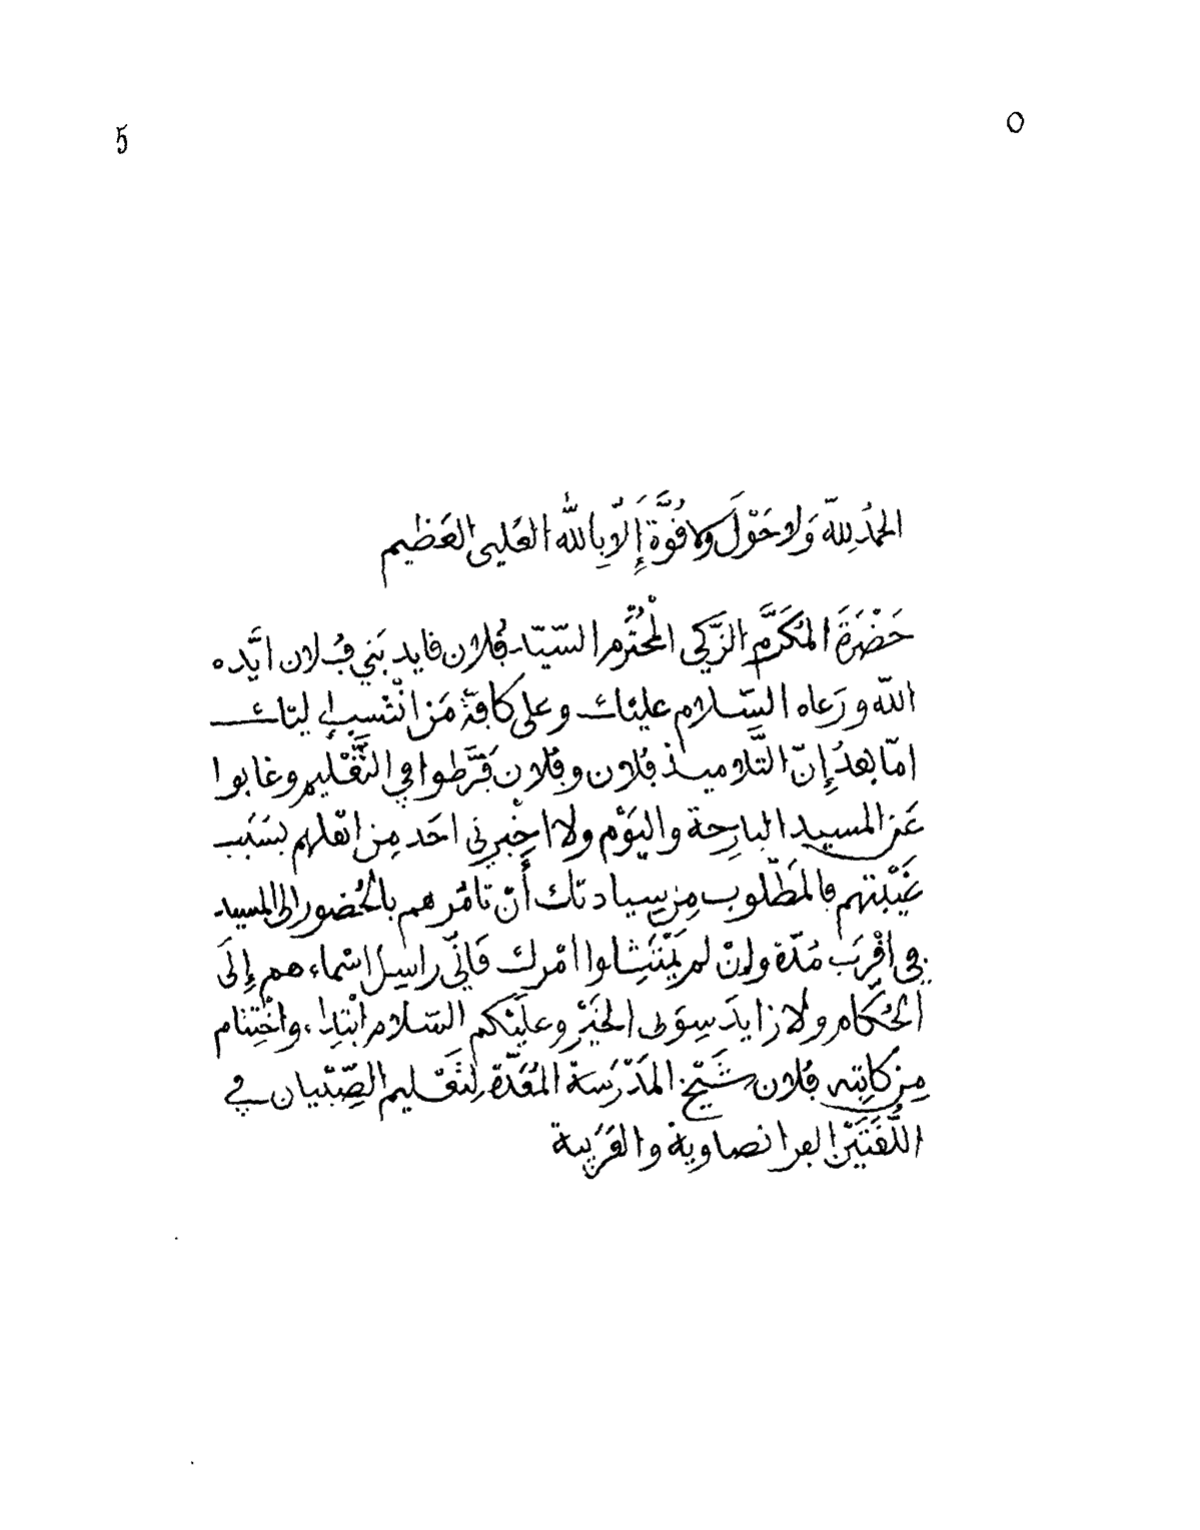 ٥
5
الحمدُ لِلّه وَلا حَوْلَ ولا قُوَّةَ إِلّا بِاللّه العَلِيى العَظيم
حَضْرَةَ المُكَرَّم الزَّكى المُحْتَرَم السّيّد فُلان قايد بَنِي فُلان ايَّده
اللّه ورَعاه السَّلام عليْك وعلى كافَة مَن انْتسب إليك
امّا بعدُ إِنّ التَّلاميذ فُلان وفُلان فَرَّطوا في التَّعْليم وغابوا
عَن المسيد البارِحة واليَوْم ولا اخْبرني احَد مِن اهْلهم بسَبَب
غَيْبَتهم فالمَطْلوب مِن سيادتك أَنْ تامُرهم بالحُضور الى المسيد
في اقْرَب مُدّة وإنْ لم يَمْتَثِلوا امْرك فَانّي راسِل اسْماءهم إِلَى
الحُكّام ولا زايدَ سِوَى الخَيْرِ وعلَيْكم السّلام ابْتِداء واخْتِتام
مِن كاتِبه فُلان شَيْخ المَدْرَسَة المُعَدّة لِتَعْليم الصِّبْيان في
اللُّغَتَيْن الفرانصاوية والعَرَبية